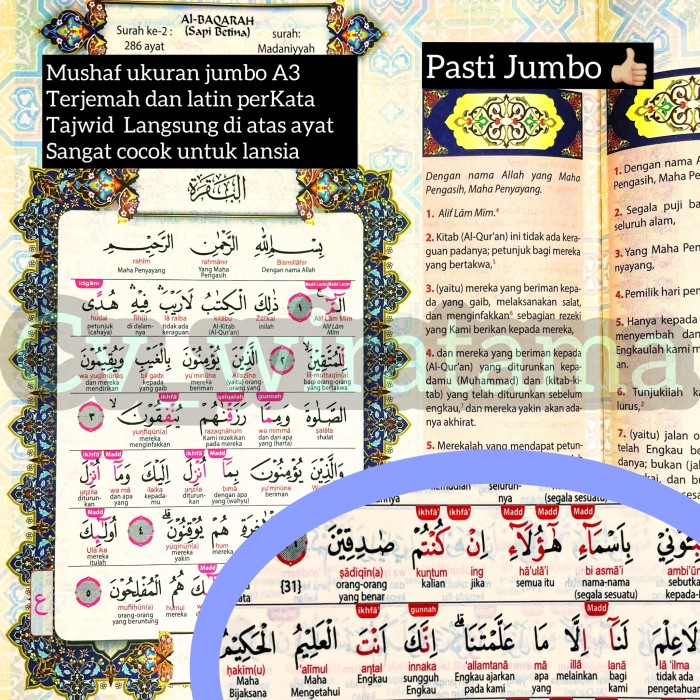 Surah ke-2 :
286 ayat
Al-BAQARAH
(Sapi Betina)
surah:
Madaniyyah
Mushaf ukuran jumbo A3
Terjemah dan latin perKata
Tajwid Langsung di atas ayat
Sangat cocok untuk lansia
Pasti Jumbo 👍🏼
البقرة
بِسْمِ اللهِ الرَّحْمٰنِ الرَّحِيْمِ
Bismillāhir raḥmānir raḥīm
Dengan nama Allah Yang Maha Pengasih Maha Penyayang
idgām Madd Lazim Madd Lazim
الۤمّۤ ۚ ١ ذٰلِكَ الْكِتٰبُ لَا رَيْبَ ۛ فِيْهِ ۛ هُدًى
Alif Lām Mīm Żālikal kitābu lā raiba fīh(i) hudal
Alif Lām Mīm inilah Al-Kitab (Al-Qur'an) tidak ada keraguan di dalamnya petunjuk (cahaya)
لِّلْمُتَّقِيْنَ ۙ ٢ الَّذِيْنَ يُؤْمِنُوْنَ بِالْغَيْبِ وَيُقِيْمُوْنَ
lil-muttaqīn(a) Allażīna yu'minūna bil gaibi wa yuqīmūnaṣ
bagi orang-orang yang bertakwa (yaitu) orang-orang yang beriman kepada yang gaib dan mereka mendirikan
ikhfā' qalqalah gunnah
الصَّلٰوةَ وَمِمَّا رَزَقْنٰهُمْ يُنْفِقُوْنَ ۙ ٣
ṣalāta wa mimmā razaqnāhum yunfiqūn(a)
shalat dan dari apa yang (harta) Kami rezekikan pada mereka mereka menginfakkan
ikhfā' Madd ikhfā' Madd
وَالَّذِيْنَ يُؤْمِنُوْنَ بِمَآ اُنْزِلَ اِلَيْكَ وَمَآ اُنْزِلَ
yu'minūna bimā unzila ilaika wa mā unzila
beriman dengan apa yang (wahyu) diturunkan kepadamu dan apa yang diturunkan
Madd
هُمْ يُوْقِنُوْنَ ۗ ٤ اُولٰۤىِٕكَ
hum yūqinūn(a) Ulā'ika
mereka yakin mereka itulah
هُمُ الْمُفْلِحُوْنَ ٥
humul mufliḥūn(a)
mereka orang-orang yang beruntung
Dengan nama Allah yang Maha
Pengasih, Maha Penyayang.
1. Alif Lām Mīm.⁴
2. Kitab (Al-Qur'an) ini tidak ada kera-
guan padanya; petunjuk bagi mereka
yang bertakwa,⁵
3. (yaitu) mereka yang beriman kepa-
da yang gaib, melaksanakan salat,
dan menginfakkan⁶ sebagian rezeki
yang Kami berikan kepada mereka,
4. dan mereka yang beriman kepada
(Al-Qur'an) yang diturunkan kepa-
damu (Muhammad) dan (kitab-ki-
tab) yang telah diturunkan sebelum
engkau,⁷ dan mereka yakin akan ada-
nya akhirat.
5. Merekalah yang mendapat petun-
1. Dengan nama A
Pengasih, Maha Pe
2. Segala puji ba
seluruh alam,
3. Yang Maha Pen
nyayang,
4. Pemilik hari pem
5. Hanya kepada
menyembah dan
Engkaulah kami m
an.
6. Tunjukilah ka
lurus,²
7. (yaitu) jalan o
telah Engkau ber
danya; bukan (jal
kemudian seluruhnya (segala sesuatu)
ikhfā' ikhfā' Madd Madd Madd
بِاَسْمَاۤءِ هٰٓؤُلَاۤءِ اِنْ كُنْتُمْ صٰدِقِيْنَ
bi asmā'i hā'ulā'i in kuntum ṣādiqīn(a)
nama-nama (segala sesuatu) semua itu jika kalian orang-orang yang benar {31}
ikhfā' gunnah Madd
لَا عِلْمَ لَنَآ اِلَّا مَا عَلَّمْتَنَا ۗ اِنَّكَ اَنْتَ الْعَلِيْمُ الْحَكِيْمُ
lā 'ilma lanā illā mā 'allamtanā innaka antal 'alīmul ḥakīm(u)
tidak ada bagi kami melainkan apa yang Engkau ajarkan pada kami sungguh Engkau Engkau Maha Mengetahui Maha Bijaksana